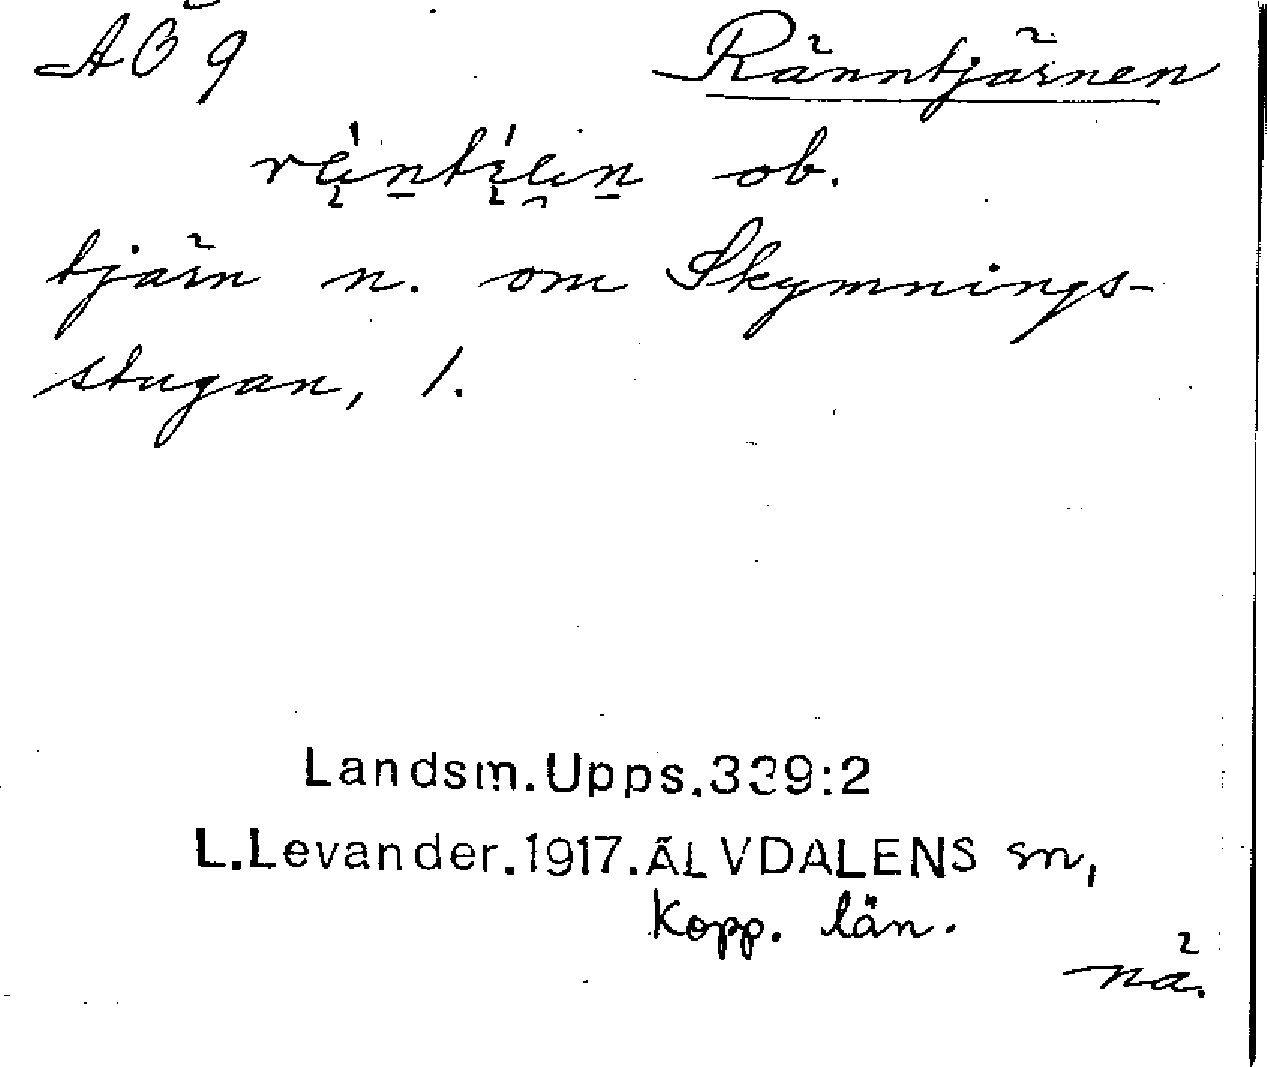 AÖ 9 Ränntjärnen
ob.
tjärn n. om Skymnings-
stugan, 1.
Landsm.Upps.339:2
L.Levander.1917.ÄLVDALENS sn,
Kopp. län.
nä.